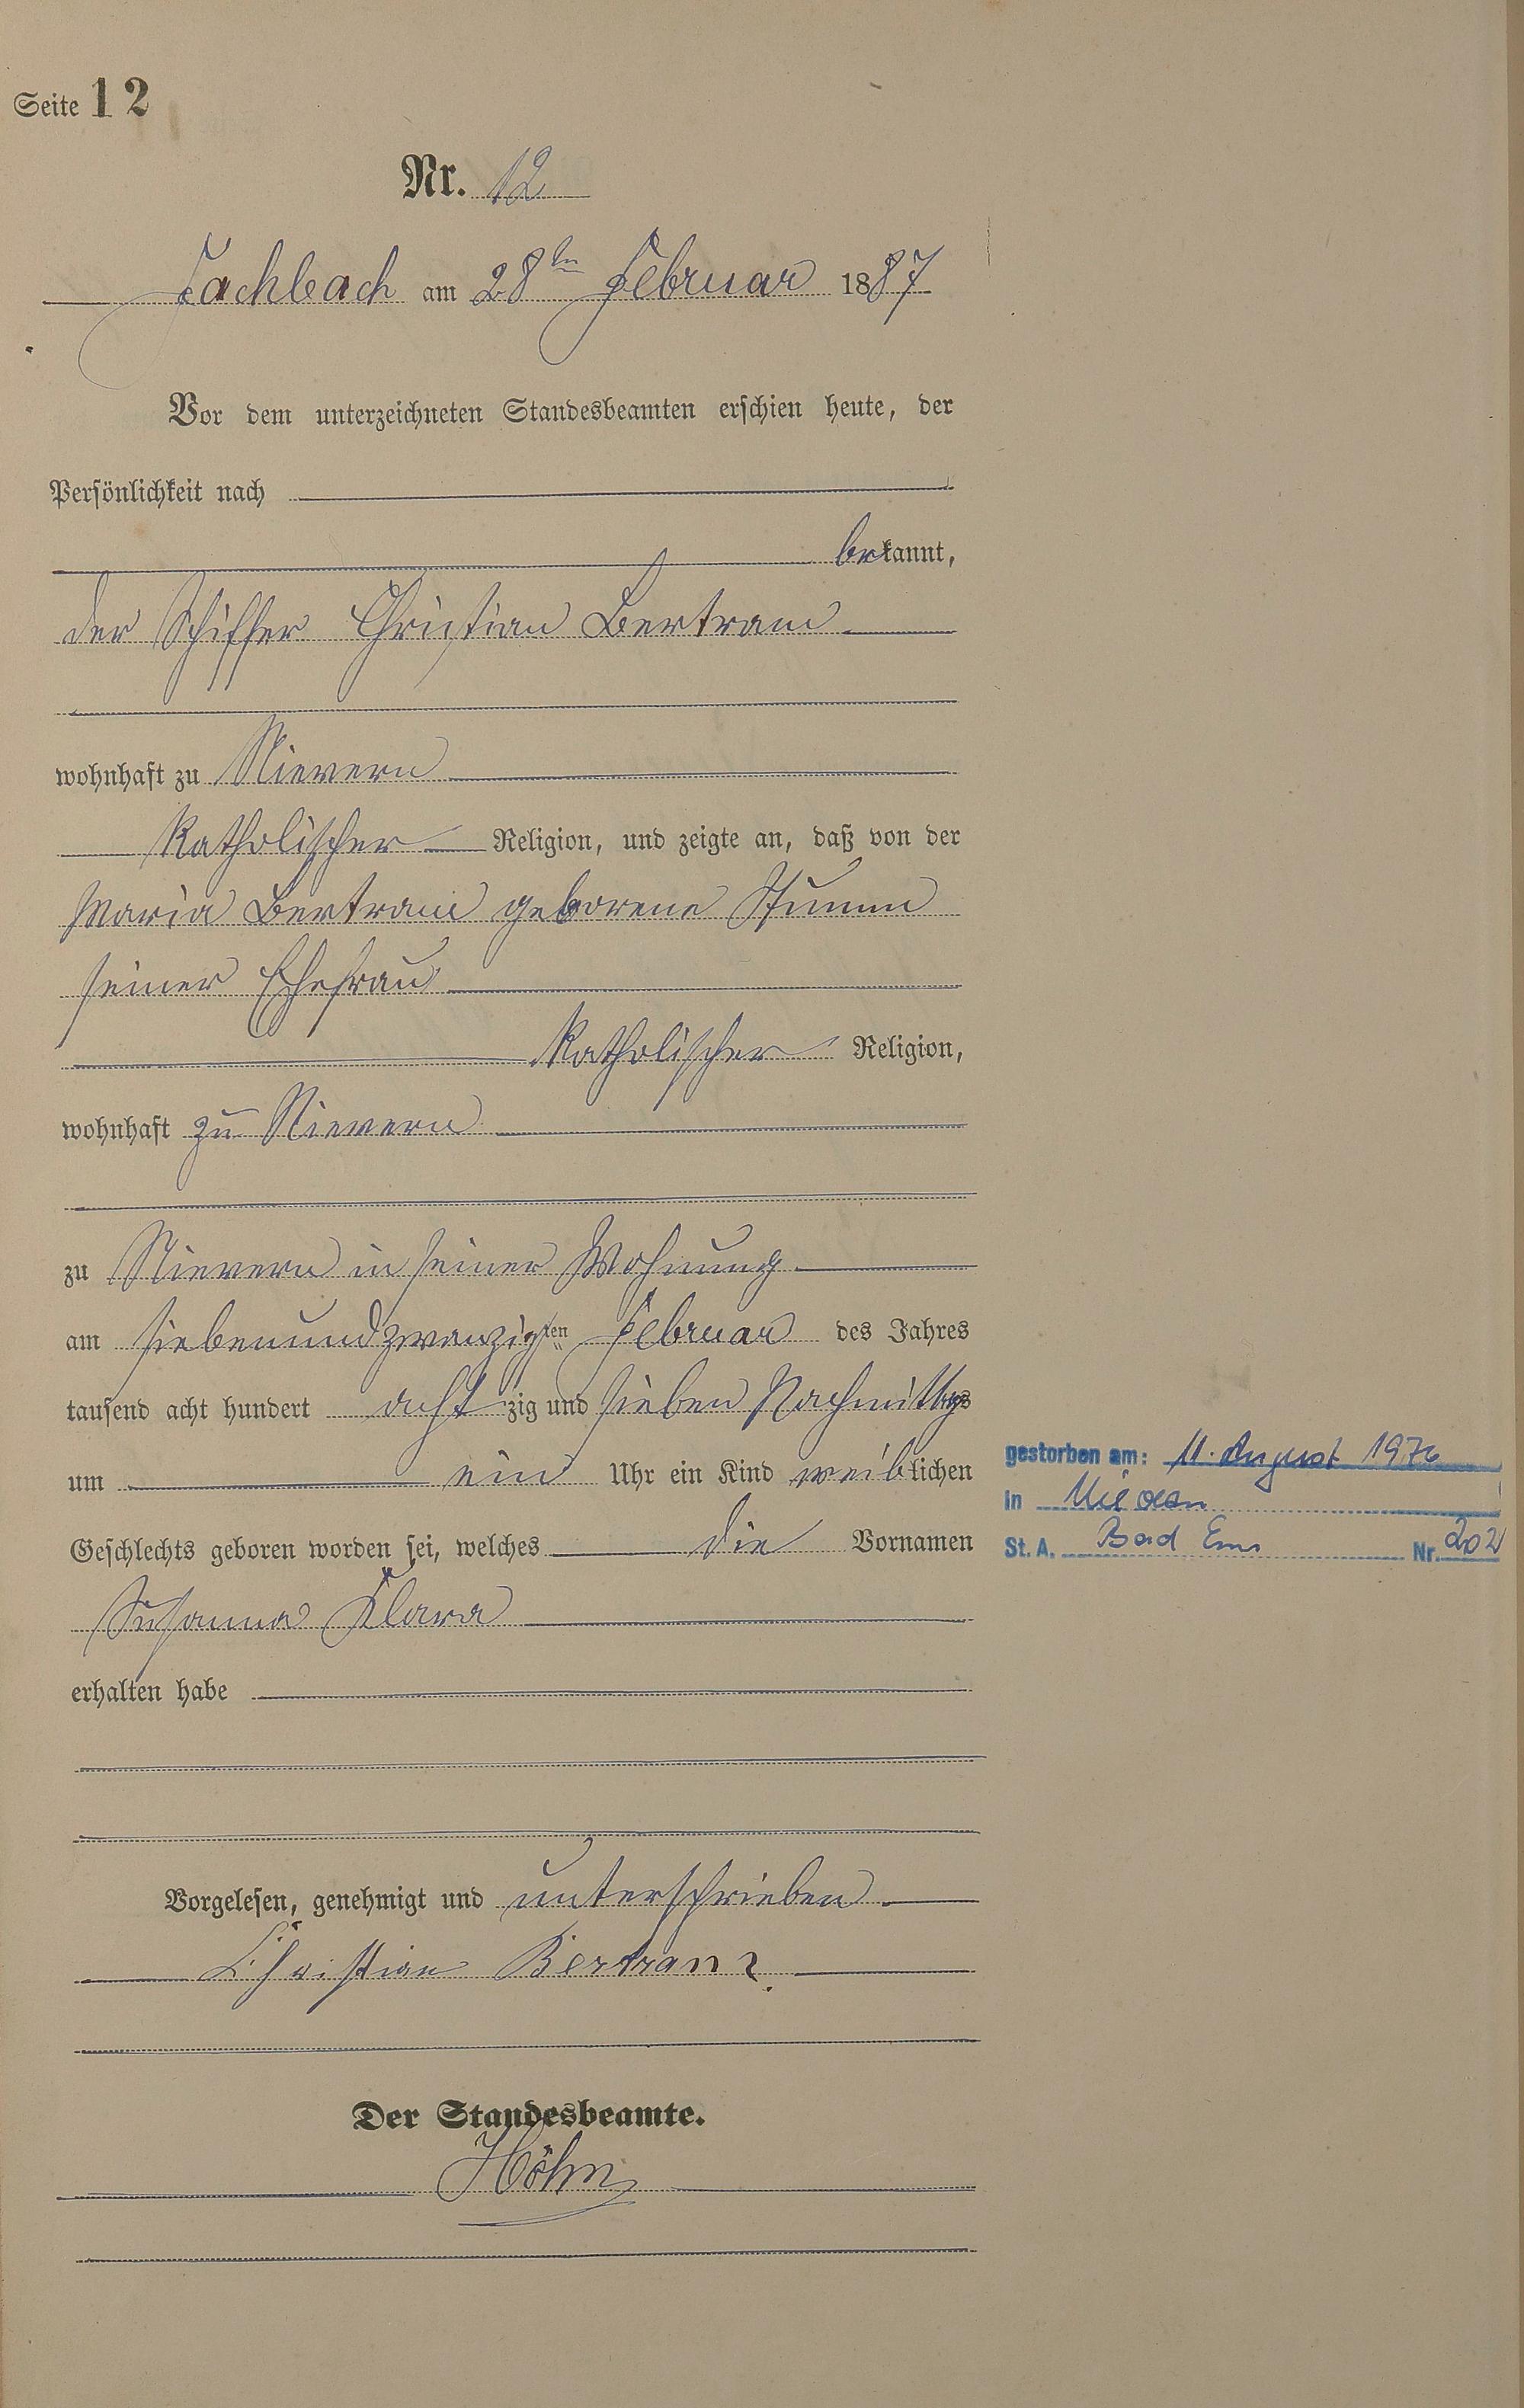 Seite 12
Nr. 12
Fachbach am 28ten Februar 1887
Vor dem unterzeichneten Standesbeamten erschien heute, der
Persönlichkeit nach
bekannt,
der Schiffer Christian Bertram
wohnhaft zu Nievern
katholischer Religion, und zeigte an, daß von der
Maria Bertram geborene Stumm
seiner Ehefrau
katholischer Religion,
wohnhaft zu Nievern
zu Nievern in seiner Wohnung
am siebenundzwanzigten Februar des Jahres
tausend acht hundert acht zig und sieben Nachmittags
um ein Uhr ein Kind weiblichen
Geschlechts geboren worden sei, welches die Vornamen
Susanna Klara
erhalten habe
Vorgelesen, genehmigt und unterschrieben
Christian Bertram
Der Standesbeamte.
Höhn
gestorben am: 11. August 1976
in Nievern
St. A. Bad Ems Nr. 202